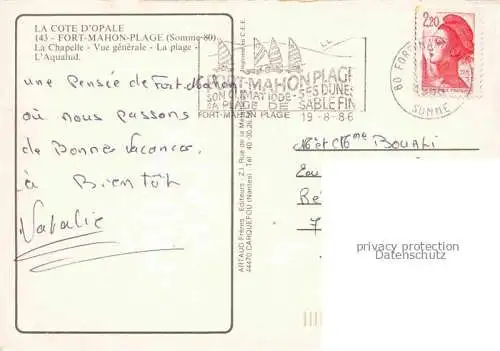 LA COTE D'OPALE
143 - FORT-MAHON-PLAGE (Somme-80)
La Chapelle - Vue générale - La plage -
L'Aqualud.
une pensée de Fort-Mahon
où nous passons
de Bonnes Vacances.
à Bientôt
Natalie
ARTAUD Frères Editeurs - Z.I. Rue de la
44470 CARQUEFOU (Nantes) Tél. 40
FORT-MAHON PLAGE
SON CLIMAT IODÉ - SES DUNES
SA PLAGE DE SABLE FIN
FORT-MAHON PLAGE 19-8-86
2,20
80 FORT
SOMME
Mr et Mme
Ré
7
privacy protection
Datenschutz